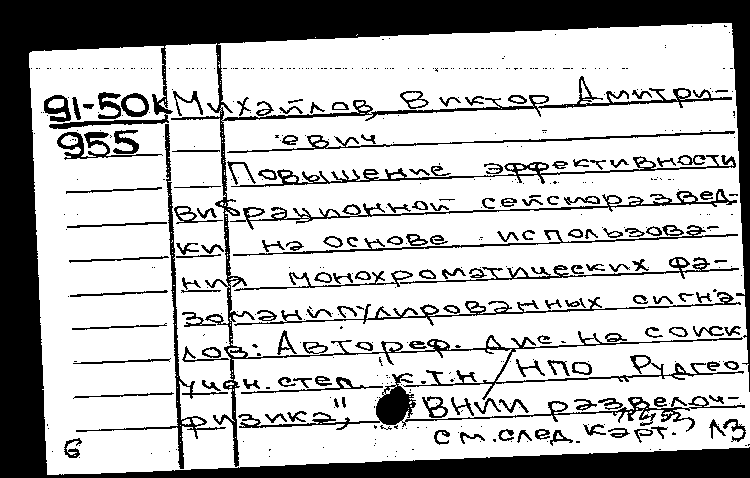 91-50к Михайлов, Виктор Дмитри-
955 евич
Повышение эффективности
вибрационной сейсморазвед-
ки на основе использова-
ния монохроматических фа-
зоманипулированных сигна-
лов: Автореф. дис. на соиск.
учен. степ. к.т.н. / НПО "Рудгео
физика", ВНИИ разведоч-
6 см. след. карт. ЛЗ